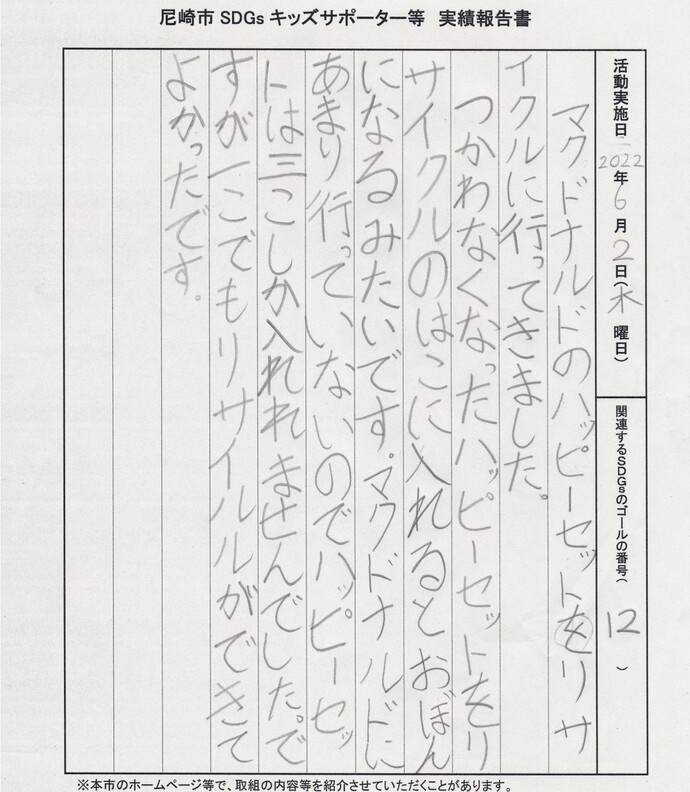 尼崎市 SDGs キッズサポーター等 実績報告書
活動実施日 2022年6月2日(木曜日)
関連するSDGsのゴールの番号( 12 )
マクドナルドのハッピーセットをリサ
イクルに行ってきました。
つかわなくなったハッピーセットをリ
サイクルのはこに入れるとおぼん
になるみたいです。マクドナルドに
あまり行っていないのでハッピーセッ
トは三こしか入れれませんでした。で
すが一こでもリサイルルができて
よかったです。
※本市のホームページ等で、取組の内容等を紹介させていただくことがあります。